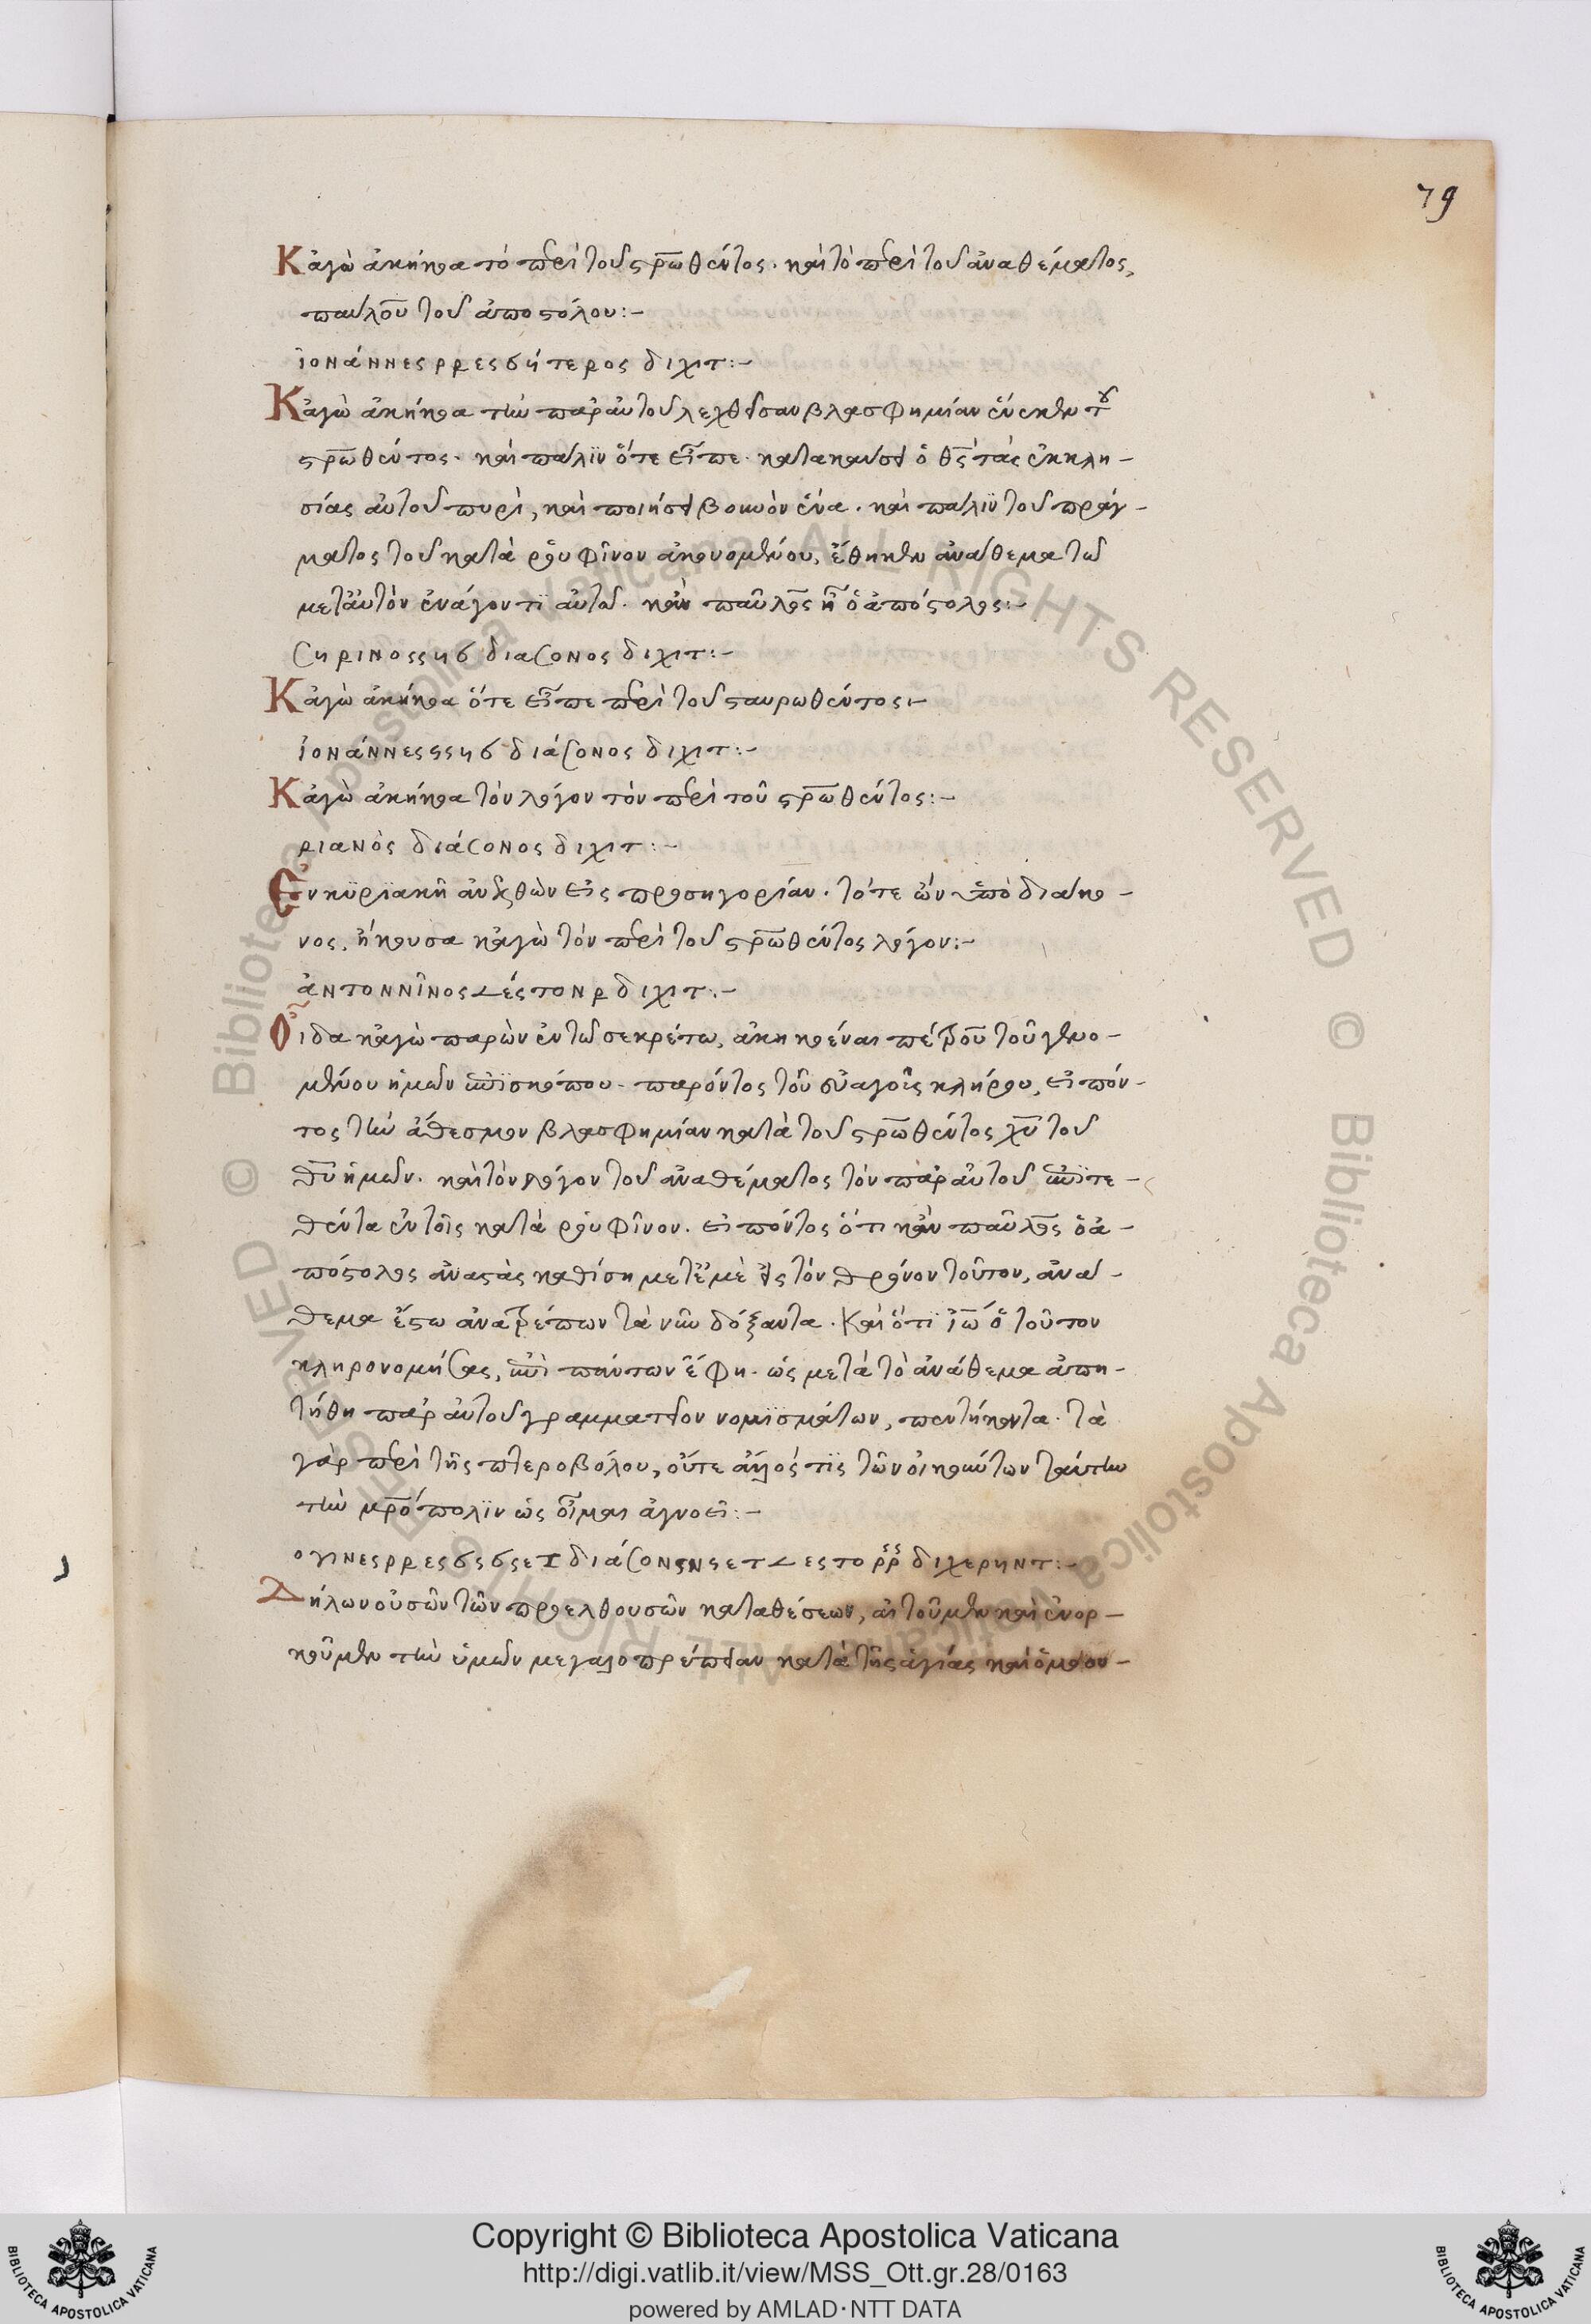 79
Κἀγὼ ἀκήκοα τὸ περὶ τοῦ στρωθέντος. καὶ τὸ περὶ τοῦ ἀναθέματος,
παύλου τοῦ ἀποστόλου:–
ἰοναννες ρρεσβήτερος διχιτ:–
Κἀγὼ ἀκήκοα τὴν παρ' αὐτοῦ λεχθεῖσαν βλασφημίαν ἕνεκεν τοῦ
στρωθέντος. καὶ πάλϊν ὅτε εἶπε. κατακαύσει ὁ θς τὰς ἐκκλη–
σίας αὐτοῦ πυρὶ, καὶ ποιήσει βουνὸν ἕνα. καὶ πάλϊν τοῦ πράγ–
ματος τοῦ κατὰ ῥουφῖνον ἀκουομένου, ἔθηκεν ἀνάθεμα τῶ
μετ' αὐτὸν ἐνάγοντϊ αὐτῶ. κἂν παῦλος ἦ ὁ ἀπόστολος:–
Cηρινοςςηβ διαCονος διχιτ:–
Κἀγὼ ἀκήκοα ὅτε εἶπε περὶ τοῦ σταυρωθέντος:–
ἰονάννεςςηβ διάCονος διχιτ:–
Κἀγὼ ἀκήκοα τὸν λόγον τὸν περὶ τοῦ στρωθέντος:–
ριανὸς διάCονος διχιτ:–
Ἐν κϋρϊακῆ ἀνελθὼν εἰς προσηγορίαν. τότε ὢν ὑπὸ διάκο–
νος, ἤκουσα κἀγὼ τὸν περὶ τοῦ στρωθέντος λόγον:–
ἀντοννῖνος λέστονρ διχιτ:–
Οἶδα κἀγὼ παρὼν ἐν τῶ σεκρέτω, ἀκηκοέναι πέτρου τοῦ γενο–
μένου ἡμῶν ἐπϊσκόπου. παρόντος τοῦ εὐαγοῦς κλήρου, εἰπόν–
τος τὴν ἄθεσμον βλασφημίαν κατὰ τοῦ στρωθέντος χυ τοῦ
θυ ἡμῶν. καὶ τὸν λόγον τοῦ ἀναθέματος τὸν παρ' αὐτοῦ ἐπϊτε–
θέντα ἐν τοῖς κατὰ ῥουφῖνον. εἰπόντος ὅτι κἂν παῦλος ὁ ἀ–
πόστολος ἀναστὰς καθίση μετ' ἐμὲ εἰς τὸν θρόνον τοῦτον, ἀνά–
θεμα ἔστω ἀνατρέπων τὰ νῦν δόξαντα. Καὶ ὅτϊ ἰω ὁ τοῦτον
κληρονομήσας, ἐπὶ πάντων ἔφη. ὡς μετὰ τὸ ἀνάθεμα ἀπη–
τήθη παρ' αὐτοῦ γραμματεῖον νομϊσμάτων, πεντήκοντα. τὰ
γὰρ περὶ τῆς πτεροβόλου, οὔτε ἄλλος τϊς τῶν οἰκούντων ταύτην
τὴν μροπολϊν ὡς οἶμαι ἀγνοεῖ:–
ογινες ρρεσβς βσετ διάCονςνς ετ λεςτο ρρ διχερηντ:–
Δήλων οὐσῶν τῶν προελθουσῶν καταθέσεων, αἰτοῦμεν καὶ ἐνορ–
κοῦμεν τὴν ὑμῶν μεγαλοπρέπειαν κατὰ τῆς ἁγίας καὶ ὁμοου–
Copyright © Biblioteca Apostolica Vaticana
http://digi.vatlib.it/view/MSS_Ott.gr.28/0163
powered by AMLAD·NTT DATA